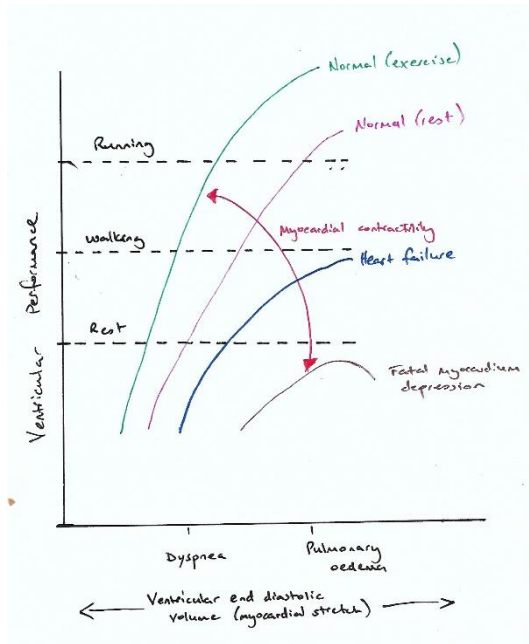 Normal (exercise)
Normal (rest)
Running
Myocardial contractility
Walking
Heart failure
Rest
Fatal myocardium
depression
Ventricular Performance
Dyspnea
Pulmonary
oedema
Ventricular end diastolic
volume (myocardial stretch)